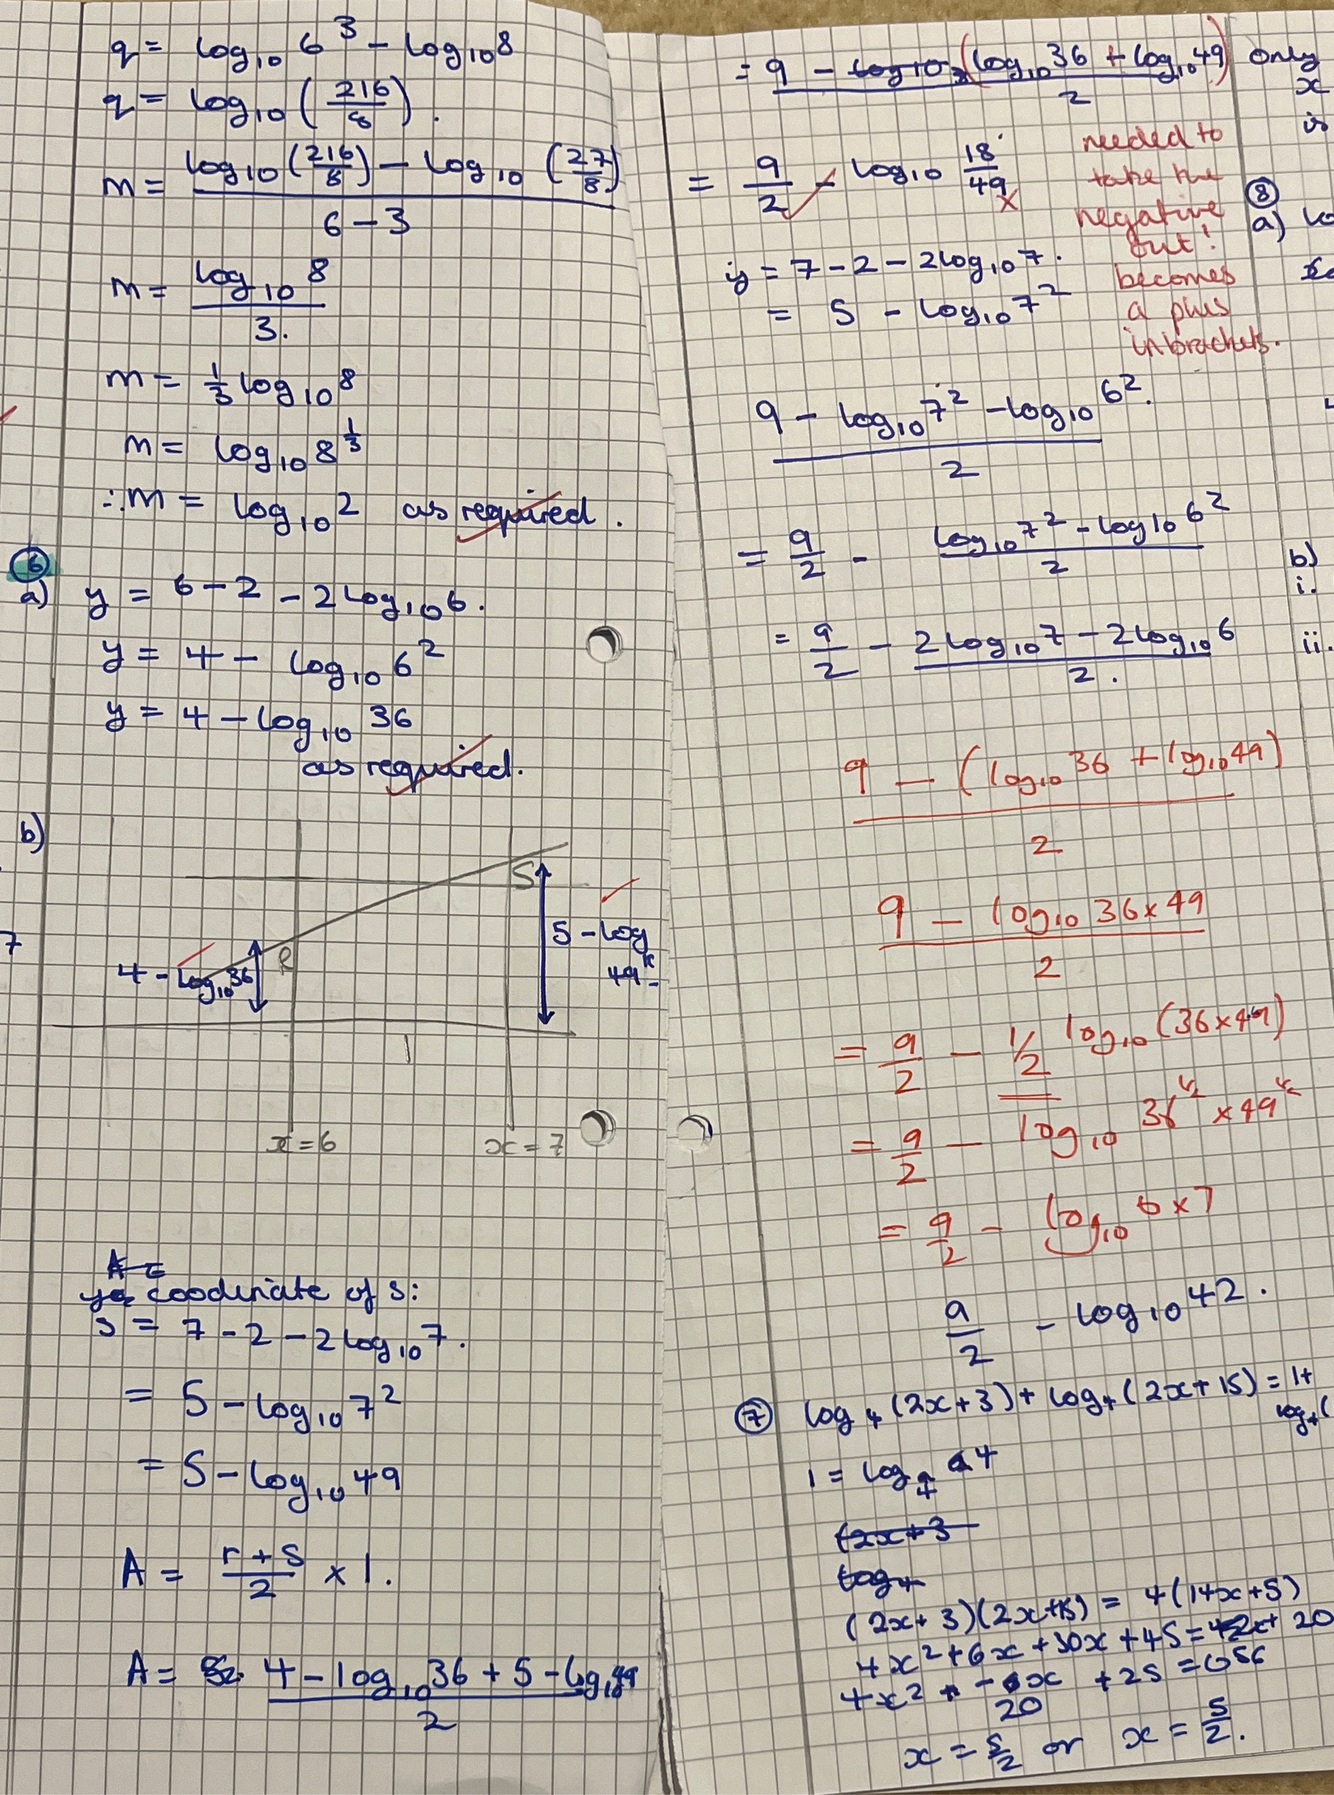 q = log₁₀ 6³ - log₁₀ 8
q = log₁₀ (216/8).
m = (log₁₀ (216/8) - log₁₀ (27/8)) / (6 - 3)
m = log₁₀ 8 / 3.
m = 1/3 log₁₀ 8
m = log₁₀ 8^(1/3)
∴ m = log₁₀ 2 as required.
6
a) y = 6 - 2 - 2 log₁₀ 6.
y = 4 - log₁₀ 6²
y = 4 - log₁₀ 36
as required.
b)
S
5 - log
49
R
4 - log₁₀ 36
7
1
x = 6
x = 7
A =
coodinate of S:
S = 7 - 2 - 2 log₁₀ 7.
= 5 - log₁₀ 7²
= 5 - log₁₀ 49
A = (r + s)/2 × 1.
A = (4 - log₁₀ 36 + 5 - log₁₀ 49) / 2
= (9 - log₁₀ (log₁₀ 36 + log₁₀ 49)) / 2
= 9/2 - log₁₀ 18/49 x
needed to
take the
negative
out!
becomes
a plus
in brackets.
y = 7 - 2 - 2 log₁₀ 7.
= 5 - log₁₀ 7²
(9 - log₁₀ 7² - log₁₀ 6².) / 2
= 9/2 - (log₁₀ 7² - log₁₀ 6²) / 2
= 9/2 - (2 log₁₀ 7 - 2 log₁₀ 6) / 2.
(9 - (log₁₀ 36 + log₁₀ 49)) / 2
(9 - log₁₀ 36 × 49) / 2
= 9/2 - 1/2 log₁₀ (36 × 49)
= 9/2 - log₁₀ 36^(1/2) × 49^(1/2)
= 9/2 - log₁₀ 6 × 7
9/2 - log₁₀ 42.
7 log₄ (2x + 3) + log₄ (2x + 15) = 1 +
log₄ (
1 = log₄ 4
(2x + 3
log₄
(2x + 3)(2x + 15) = 4(14x + 5)
4x² + 6x + 30x + 45 = 56x + 20
4x² - 20x + 25 = 0
x = 5/2 or x = 5/2.
only
x
is
8
a) lo
b)
i.
ii.